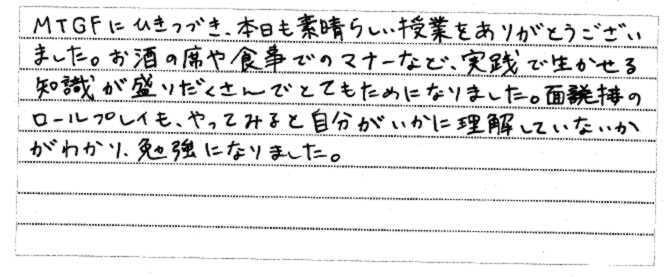 MTGFにひきつづき、本日も素晴らしい授業をありがとうござい
ました。お酒の席や食事でのマナーなど、実践で生かせる
知識が盛りだくさんでとてもためになりました。面接の
ロールプレイも、やってみると自分がいかに理解していないか
がわかり、勉強になりました。